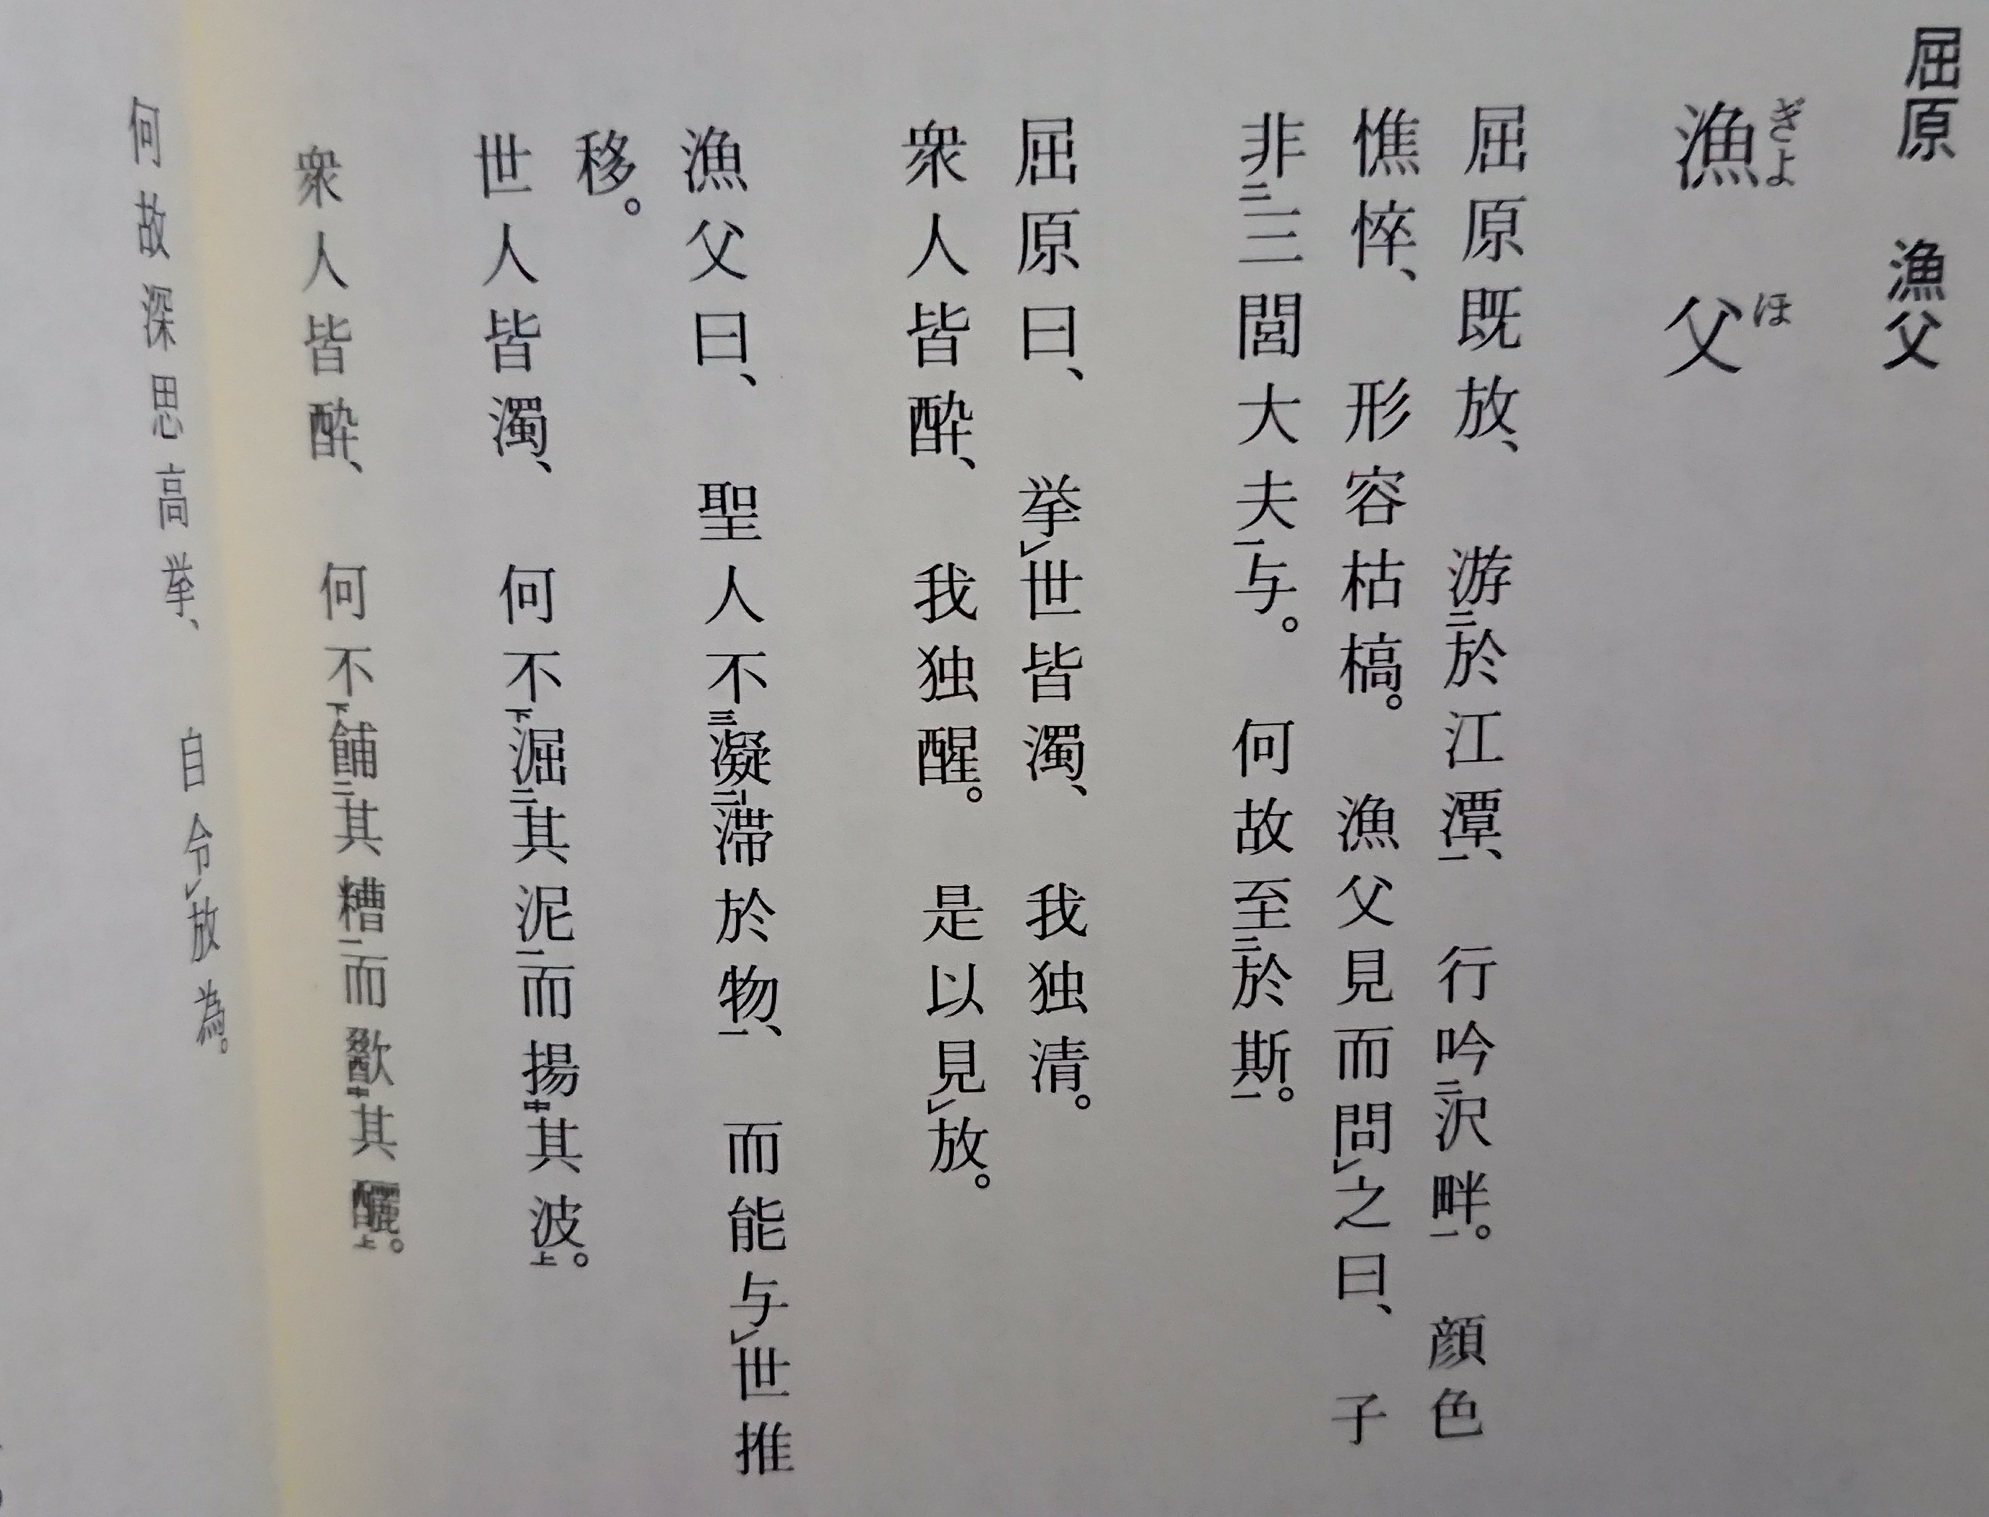 屈原 漁父
漁父
ぎよほ
屈原既放、游二於江潭一、行吟二沢畔一。顔色
憔悴、形容枯槁。漁父見而問レ之曰、子
非二三閭大夫一与。何故至二於斯一。
屈原曰、挙レ世皆濁、我独清。
衆人皆酔、我独醒。是以見レ放。
漁父曰、聖人不三凝二-滞於物一、而能与レ世推
移。
世人皆濁、何不下淈二其泥一而揚中其波上。
衆人皆酔、何不下餔二其糟一而歠中其釃上。
何故深思高挙、自令レ放為。